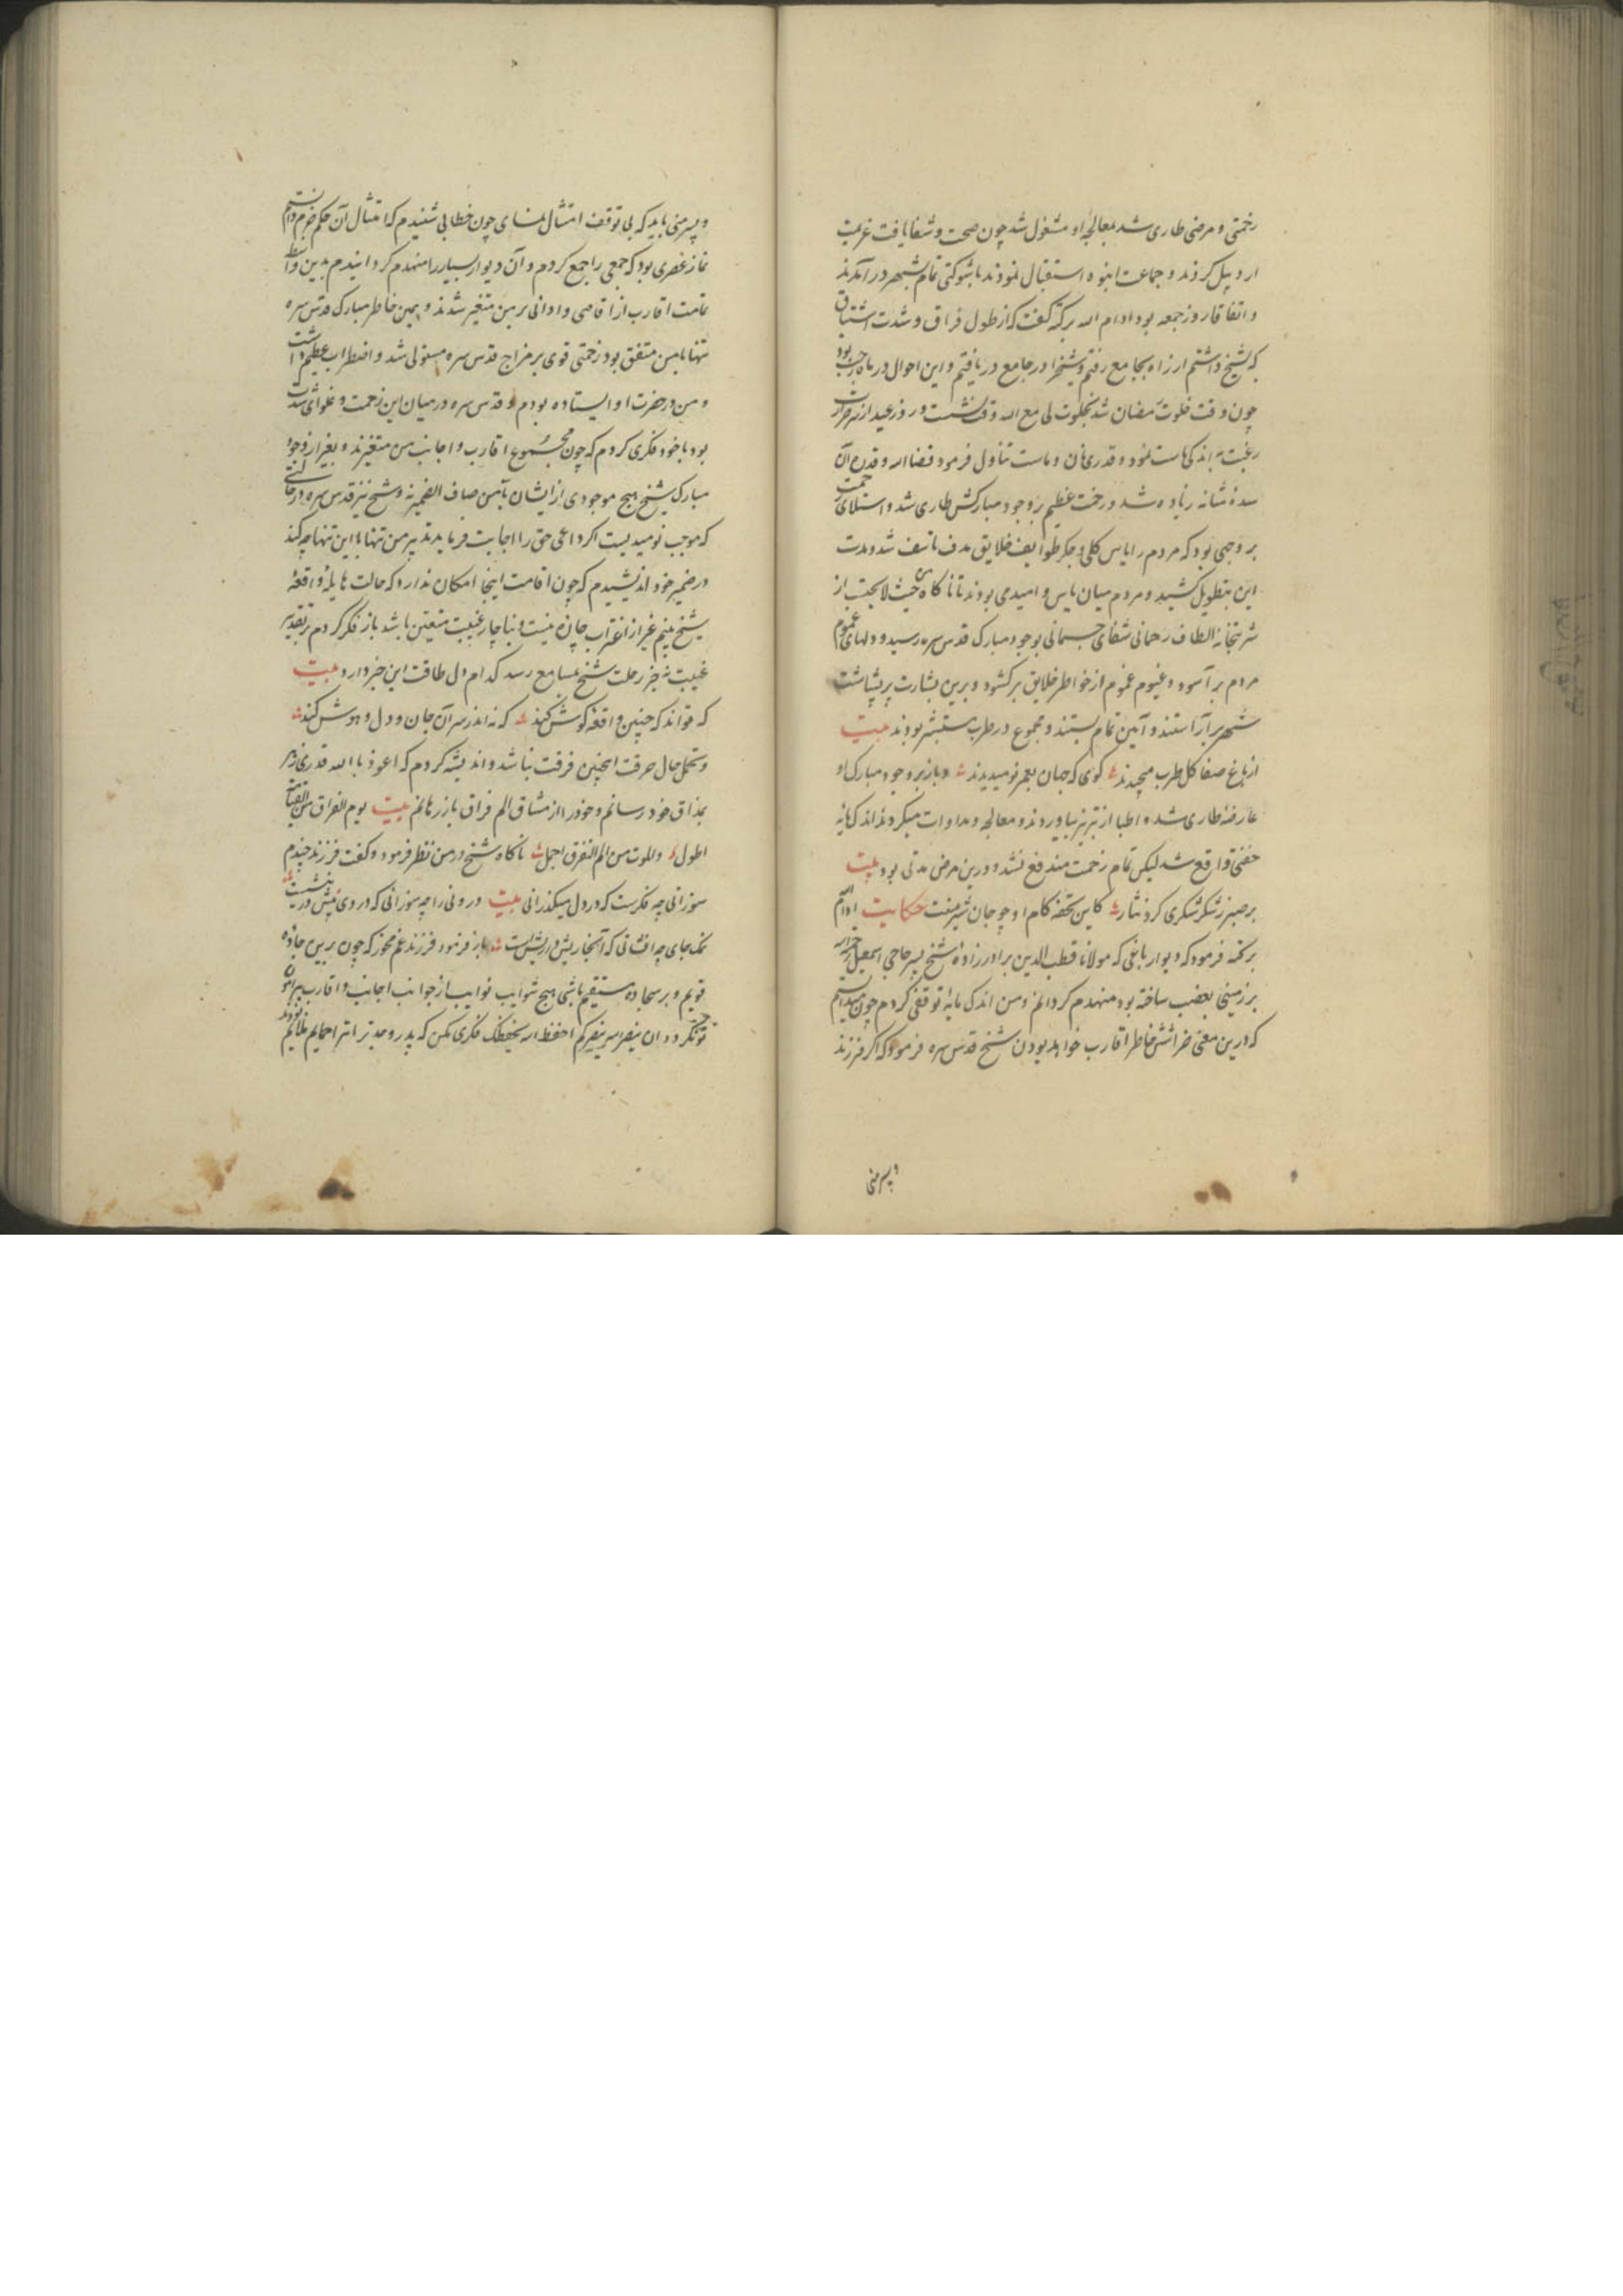 زحمتی و مرضی طاری شد بمعالجۀ او مشغول شد چون صحت و شفا یافت عزیمت
اردبیل کردند و جماعت انبوه استقبال نمودند با شوکتی تمام بشهر در آمدند
و اتفاقا روز جمعه بود ادام الله برکته گفت که از طول فراق و شدت اشتیاق
که بشیخ داشتم از راه بجامع رفتم و شیخ را در جامع دریافتم و این احوال در ماه رجب بود
چون وقت خلوت رمضان شد بخلوت لی مع الله وقت نشست و روز عید از سر حرارت
رغبت به اندکی ماست نمود و قدری نان و ماست تناول فرمود قضا الله و قدره آن
سده شانه زیاده شد و زحمت عظیم بر وجود مبارکش طاری شد و استیلای زحمت
بر وجهی بود که مردم را یاس کلی و جگر طوایف خلایق هدف تاسف شد و مدت
این بتطویل کشید و مردم میان یاس و امیدی بودند تا ناگاه من حیث لا یحتسب از
شربتخانه الطاف رحمانی شفای جسمانی بوجود مبارک قدس سره رسید و دلهای عموم
مردم بر آسود و غیوم غموم از خواطر خلایق برکشود و برین بشارت پر بشاشت
شهر برآراستند و آیین تمام بستند و مجموع در طرب مستبشر بودند بیت
از باغ صفا گل طرب میچیدند گوی که جهان بعمر نو میدیدند و باز بر وجود مبارک او
عارضه طاری شد و اطبا از تبریز بیاوردند و معالجه و مداوات میکردند اندک مایه
خفتی واقع شد لیکن تمام زحمت مندفع نشد و درین مرض مدتی بود بیت
بر صبر ز شکر شکری کرد نثار کاین تحفه کام او چو جان شیرینست حکایت ادام الله
برکته فرمود که دیوار باغی که مولانا قطب الدین برادرزادۀ شیخ پسر حاجی اسمعیل
بر زمینی بغصب ساخته بود منهدم گردانم و من اندک مایۀ توقفی کردم چون میدانستم
که درین معنی خراشش خاطر اقارب خواهد بودن شیخ قدس سره فرمود که اگر فرزند
و پسر منی
و پسر منی باید که بی توقف امتثال نمای چون خطابی شنیدم که امتثال آن حکم جزم دانستم
نماز عصری بود که جمعی را جمع کردم و آن دیوار بسیار را منهدم گردانیدم بدین واسطه
تمامت اقارب از اقاصی و ادانی بر من متغیر شدند و همین خاطر مبارک قدس سره
تنها با من متفق بود زحمتی قوی بر مزاج قدس سره مستولی شد و اضطراب عظیم داشت
و من در حضرت او ایستاده بودم و قدس سره در میان این زحمت و غلوای شدت
بود با خود فکری کردم که چون مجموع اقارب و اجانب من متغیرند و بغیر از وجود
مبارک شیخ هیچ موجودی از ایشان با من صاف الضمیر نه و شیخ نیز قدس سره در حالتی
که موجب نومیدیست اگر داعی حق را اجابت فرماید تدبیر من تنها با این تنها چه کند
در ضمیر خود اندیشیدم که چون اقامت اینجا امکان ندارد که حالت هایله و واقعۀ
شیخ بینم غیر از اغتراب چاره نیست و ناچار غیبت متعین باشد باز فکر کردم بر تقدیر
غیبت نه خبر رحلت شیخ بمسامع رسد کدام دل طاقت این خبر دارد بیت
که تواند که چنین واقعه گوش کند که نه اندر سر آن جان و دل و هوش کند
و تحمل حال حرقت اینچنین فرقت نباشد و اندیشه کردم که اعوذ بالله قدری زهر
بمذاق خود رسانم و خود را از مشاق الم فراق باز رهانم بیت یوم الفراق من القیامة
اطول و للموت من الم التفرق اجمل ناگاه شیخ در من نظر فرمود و گفت فرزند چندم
سوزانی چه فکرست که در دل میگذرانی بیت درونی را چه سوزانی که در وی نیش در نیشست
نمک جای چه افشانی که آنجا ریش در ریشست باز فرمود فرزند غم مخور که چون برین جادۀ
قویم و بر سجاده مستقیم باشی هیچ شوایب نوایب از جوانب اجانب و اقارب پیرامون
تو نگردد ان ینصرکم الله ینصرکم احفظ الله یحفظک فکری مکن که پدر و جد ترا